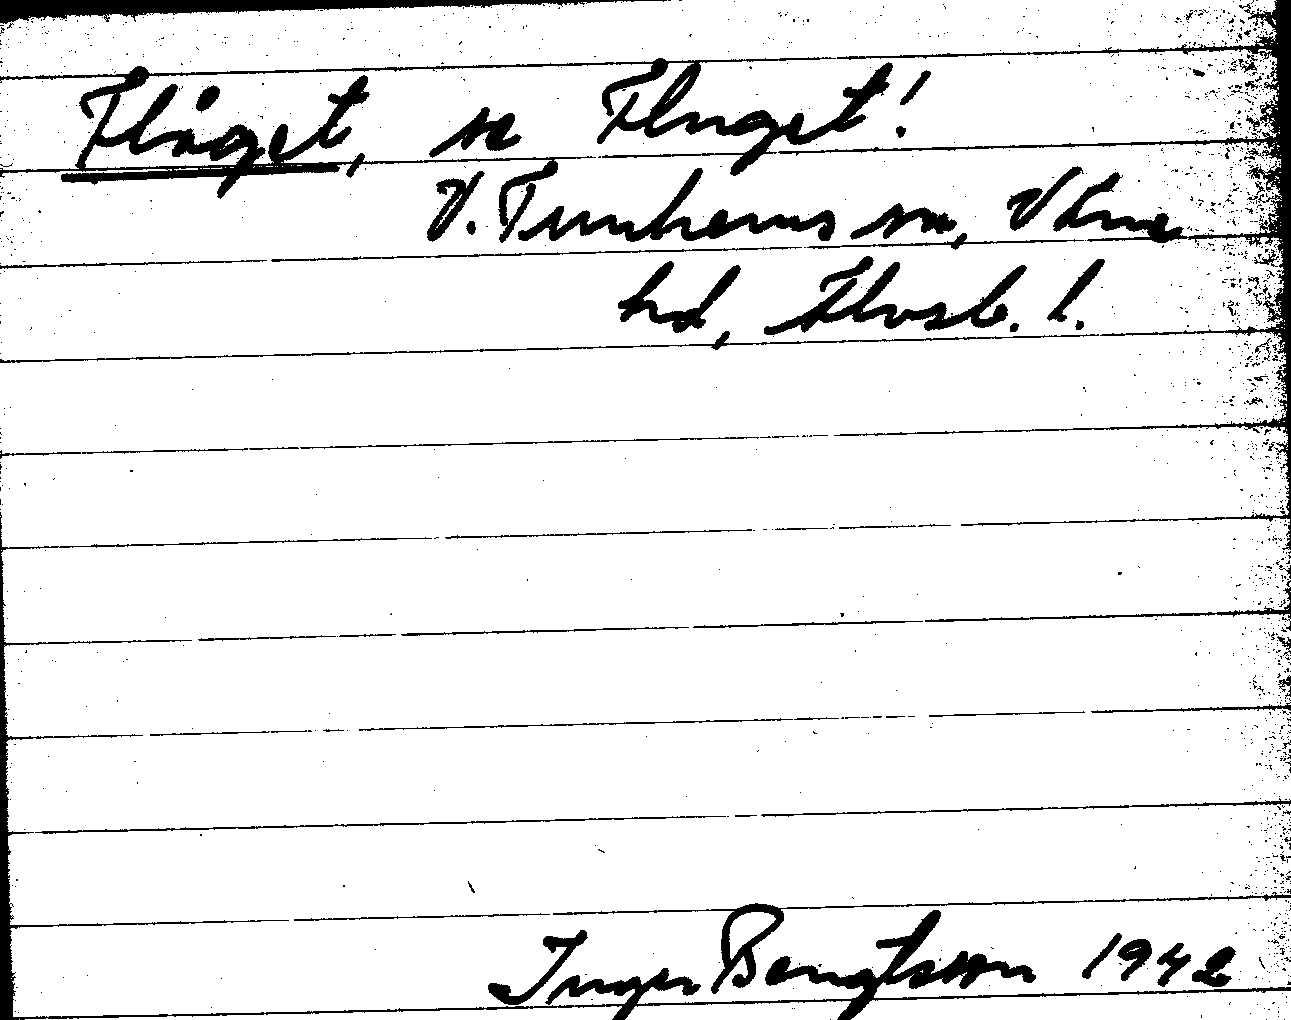 Flåget, se Fluget!
V. Tunhems sn, Väne
hd, Älvsb. l.
Inger Bengtsson 1942